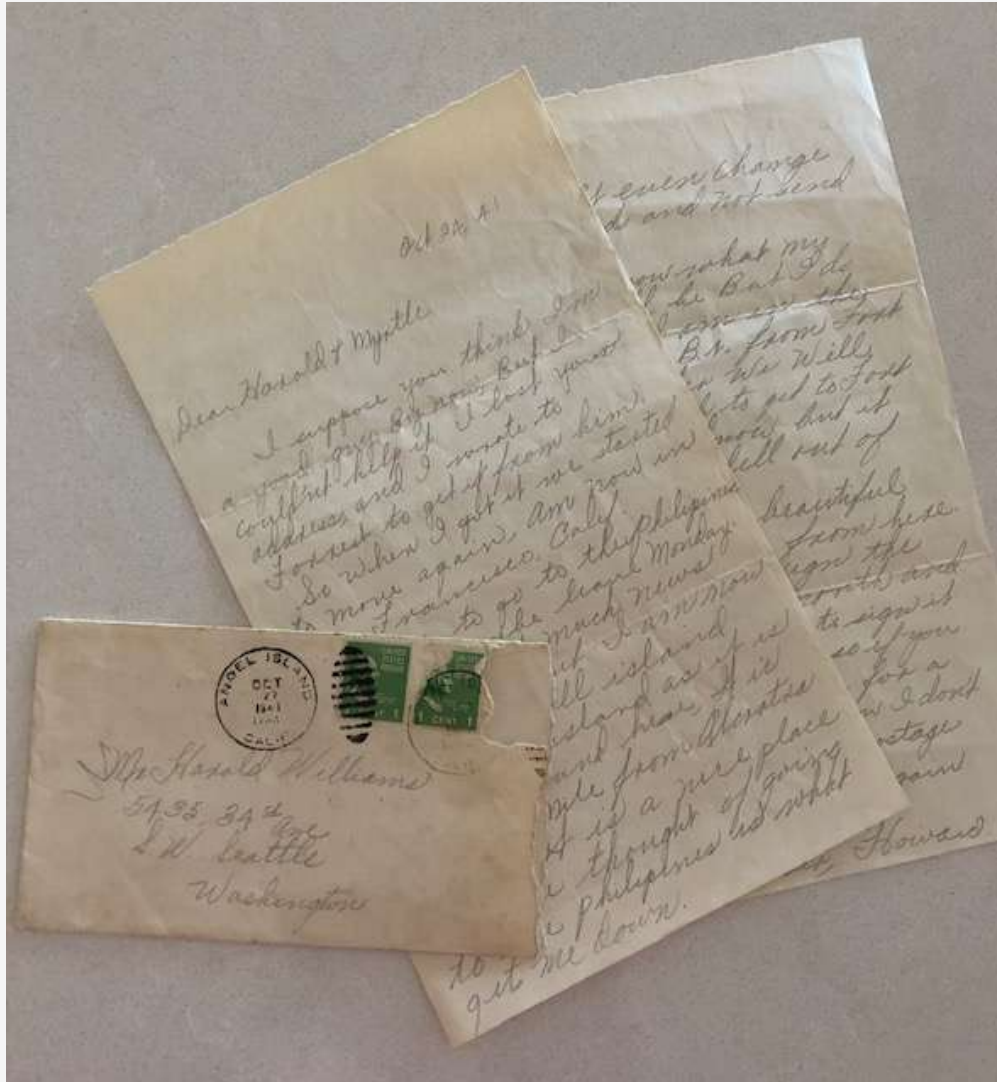 Oct 26, 41
Dear Harold & Myrtle
I suppose you think I'm
a good one by now. But I
couldn't help it. I lost your
address and I wrote to
Forrest to get it from him.
So when I got it we started
to move again. Am now in
Francisco, Calif.
to go to the Philipines
be leave Monday.
much news
I am now
ll island
island as it is
and hear. A it
mile from Alcratas
it is a nice place
thought of going
to Philipines is what
get me down.
t even change
and not send
ow what my
be But I do
Bt. from Fort
We Will
to get to Fort
now, and it
fell out of
beautiful
from here.
sign the
month and
to sign it
so if you
for a
I dont
ostage
Howard
ANGEL ISLAND
OCT
27
1941
CALIF.
1 CENT 1
Mr Harold Williams
5435 34th Ave
S.W. Seattle
Washington